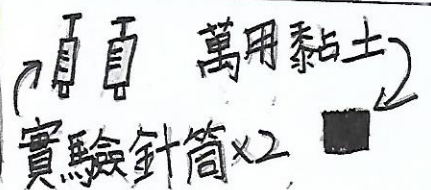 萬用黏土
實驗針筒×2